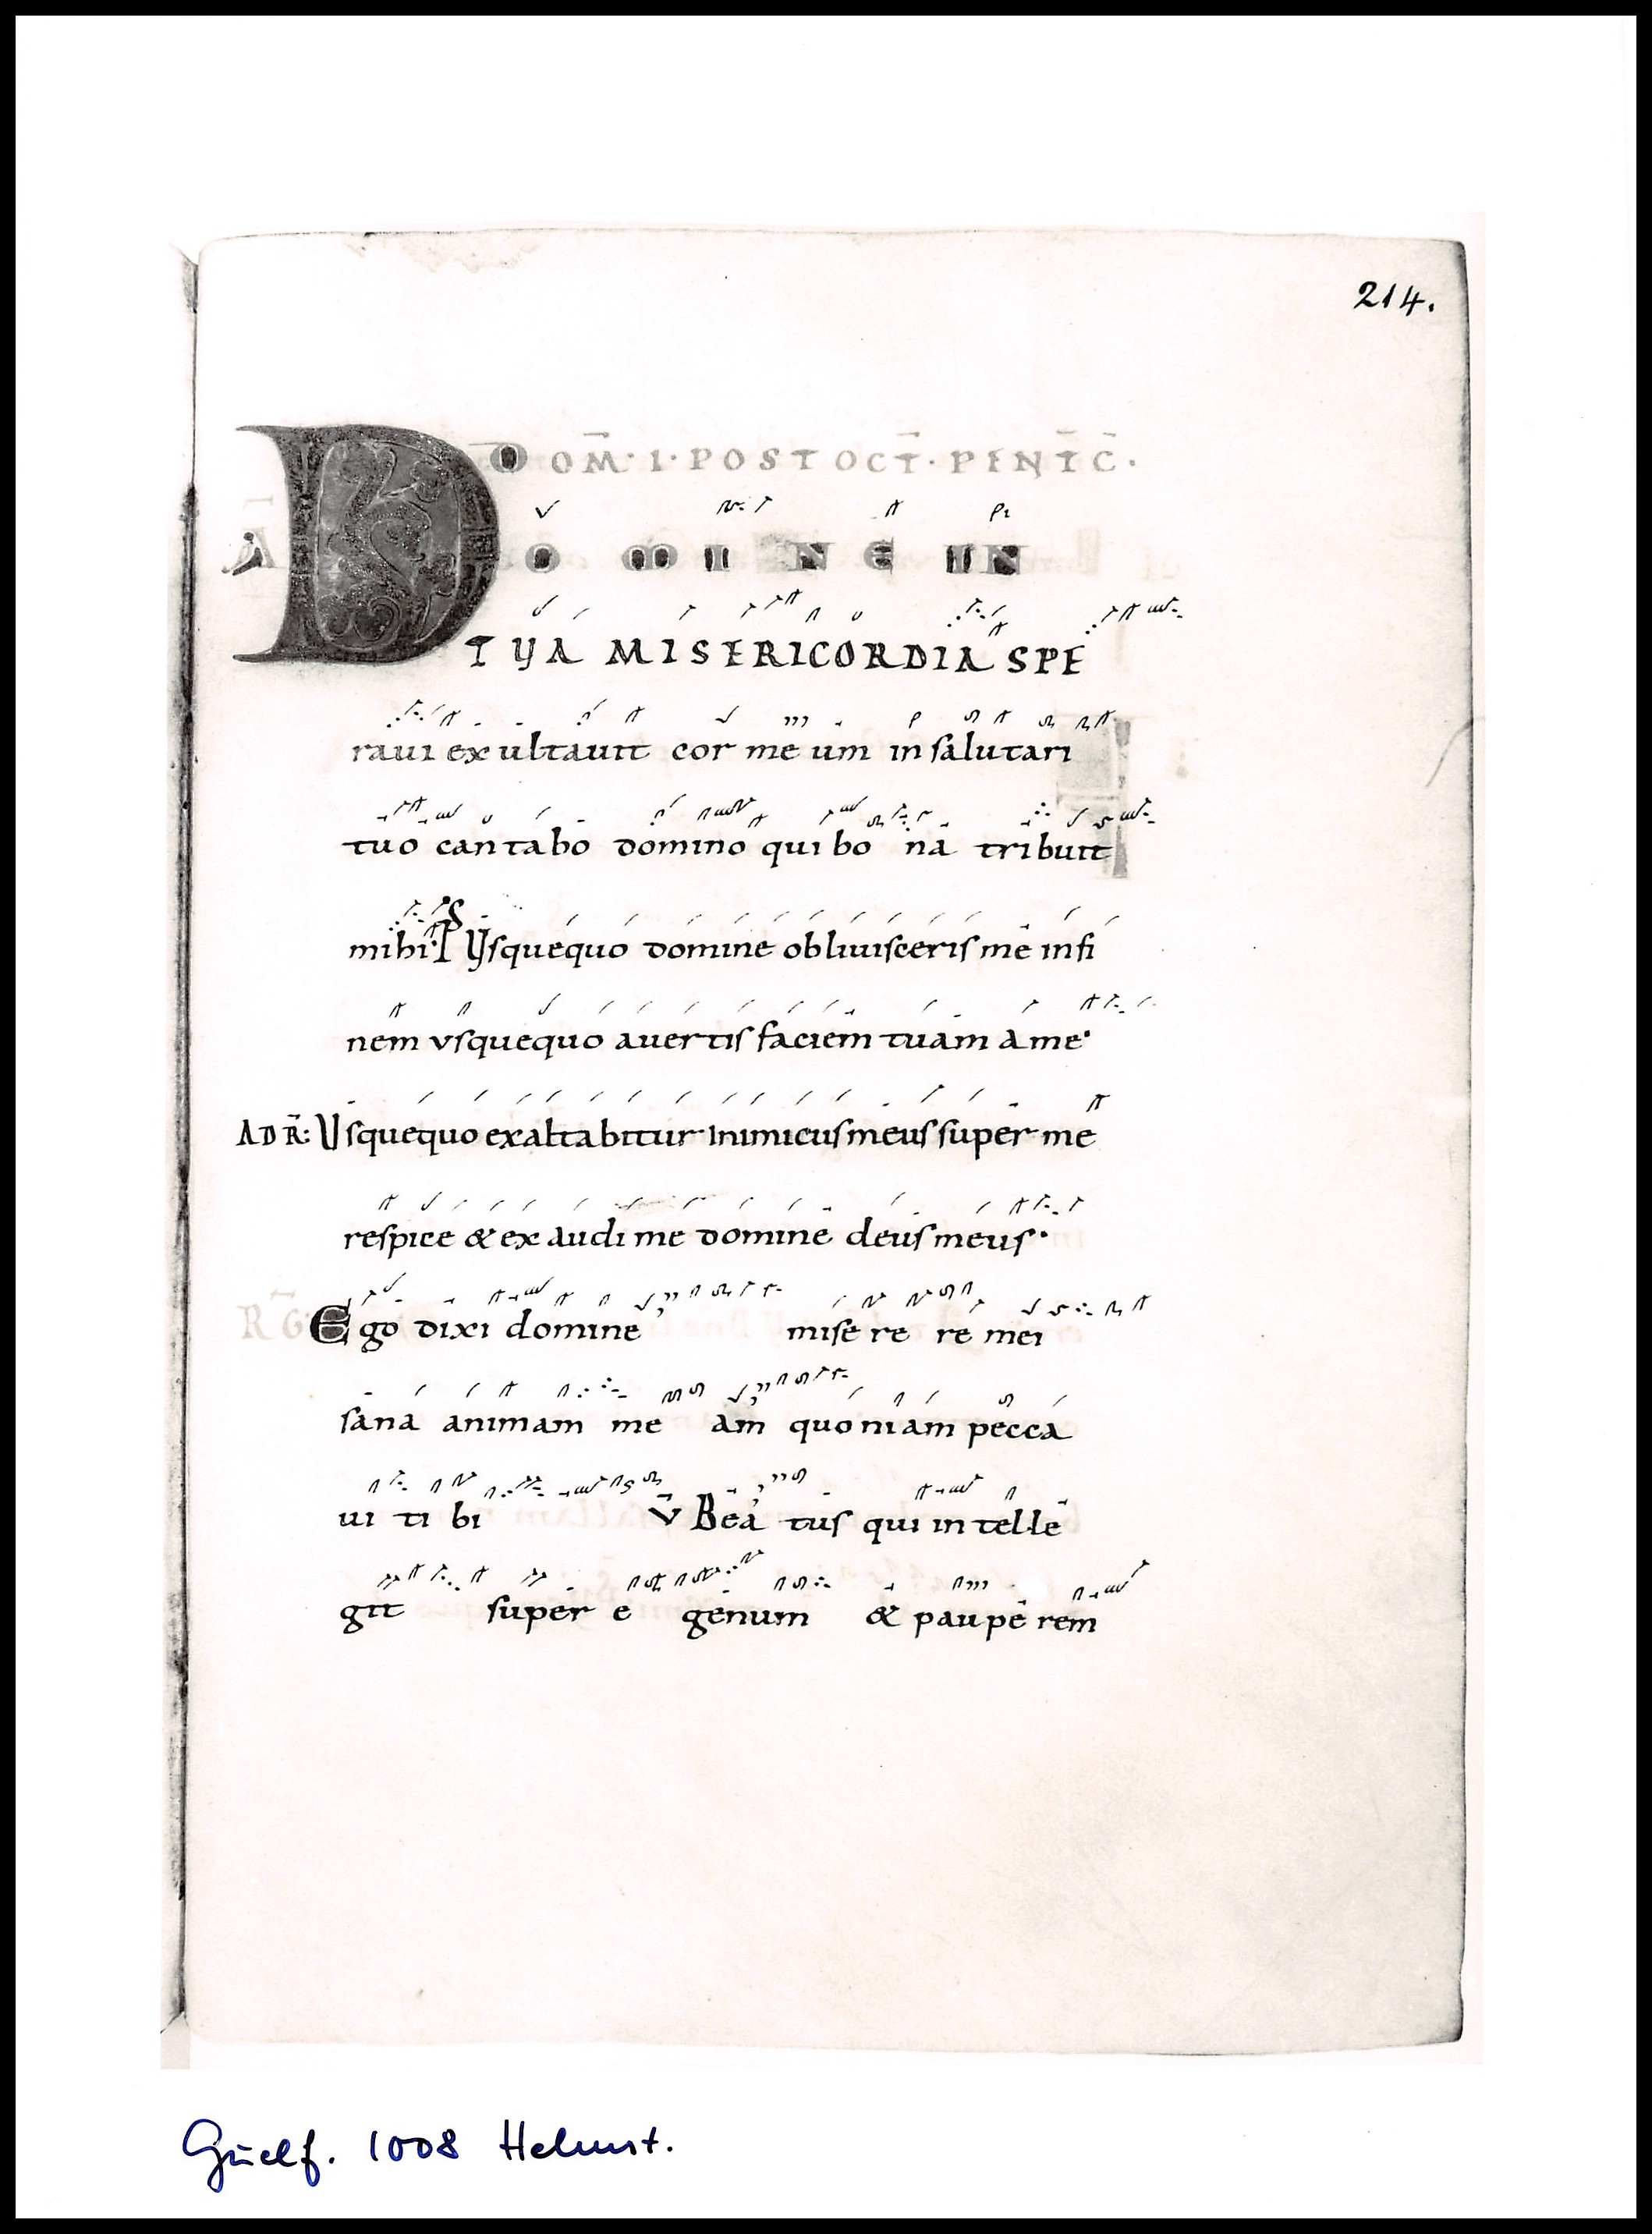 214.
DOM̄·I·POST OCT̄·PENT̄C̄·
Ā DOMINE IN
TUA MISERICORDIA SPE
raui exultauit cor meum in salutari
tuo cantabo domino qui bona tribuit
mihi· PS Usquequo domine obliuisceris me infi
nem vsquequo auertis faciem tuam a me·
AD R̄: Usquequo exaltabitur inimicus meus super me
respice & ex audi me domine deus meus·
R̄G Ego dixi domine miserere mei
sana animam meam quoniam pecca
ui tibi V̄ Beatus qui intelle
git super egenum & pauperem
Guelf. 1008 Helmst.